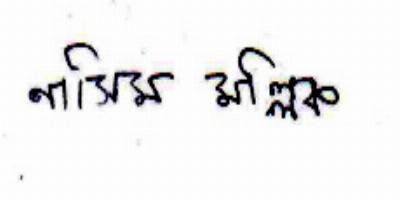 নাসিম মল্লিক